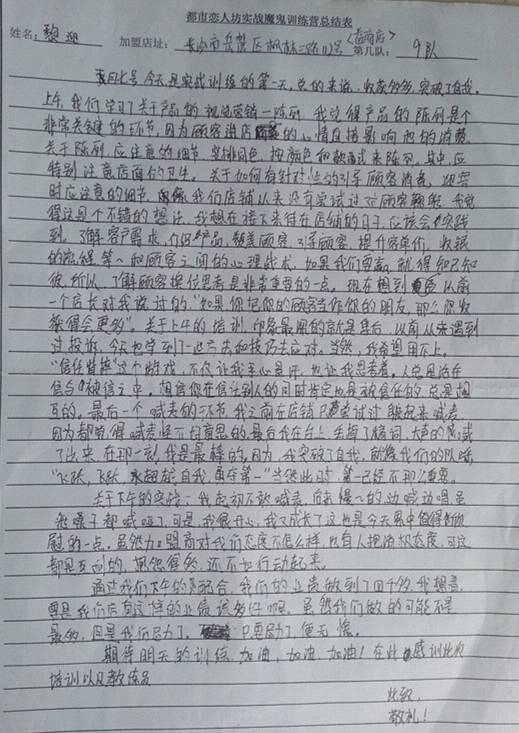 都市恋人坊实战魔鬼训练营总结表
姓名：黎迎 加盟店址：长沙市岳麓区枫林三路112号 第几队：9队
七号,今天是实战训练的第一天,总的来说,收获多多,突破了自我。
上午,我们学习了关于产品的视觉营销—陈列,我觉得产品的陈列是个
非常关键的环节,因为顾客进店的心情直接影响她的消费
关于陈列,应注意的细节,安排同色,按颜色和款式来陈列,其中,应
特别注意店面的卫生。关于如何有针对性的引导顾客消费,迎宾
时应注意的细节,我们店铺从来没有尝试过对顾客鞠躬,我觉
得这是个不错的想法,我想在接下来待在店铺的日子,应该会实践
到,了解客户需求,介绍产品,赞美顾客,引导顾客,提升客单价,收银
的流程等~和顾客之间的心理战术,如果我们要赢,就得知己知
彼,所以,了解顾客换位思考是非常重要的一点。现在想到以前
一个店长对我说过的,"如果你把你的顾客当作你的朋友,那么你收
获得会更多"。关于上午的培训,印象最深的就是售后,以前从未遇到
过投诉,今天也学到了一些方法和技巧去应对。当然,我希望用不上。
"信任背摔"这个游戏,不仅让我身心提升,也让我思考着,人总是活在
信与被信之中,相信你在信任别人的同时肯定也是被信任的,总是相
互的。最后一个喊麦的环节,我之前在店铺只尝试过跟起来喊麦,
因为都觉得喊麦是个有意思的,最后我在台上,丢掉了稿词,大声的喊
了出来,在那一刻,我是最棒的,因为,我突破了自我,就像我们的队呼,
"飞跃,飞跃,永超越,自我,勇夺第一"当然此时,第一已经不那么重要。
关于下午的实践:我起初不敢喊麦,后来慢~的边喊边唱,虽
然嗓子都喊哑了,可是,我很开心,我又成长了,这也是今天累中值得欣
慰的一点。虽然加盟商对我们态度不怎么样,也有人抱消极态度,可这
都是互动的,埋怨倒的,还不如行动起来。
通过我们下午的配合,我们的业责做到了四千多,我想着,
要是我们店有这样的业绩,该多好啊。虽然我们做的可能不是
最多,但是我们尽力了,只要尽力了,便无憾。
期待明天的训练,加油,加油,加油!在此感谢此次
培训以及教练员
此致,
敬礼!